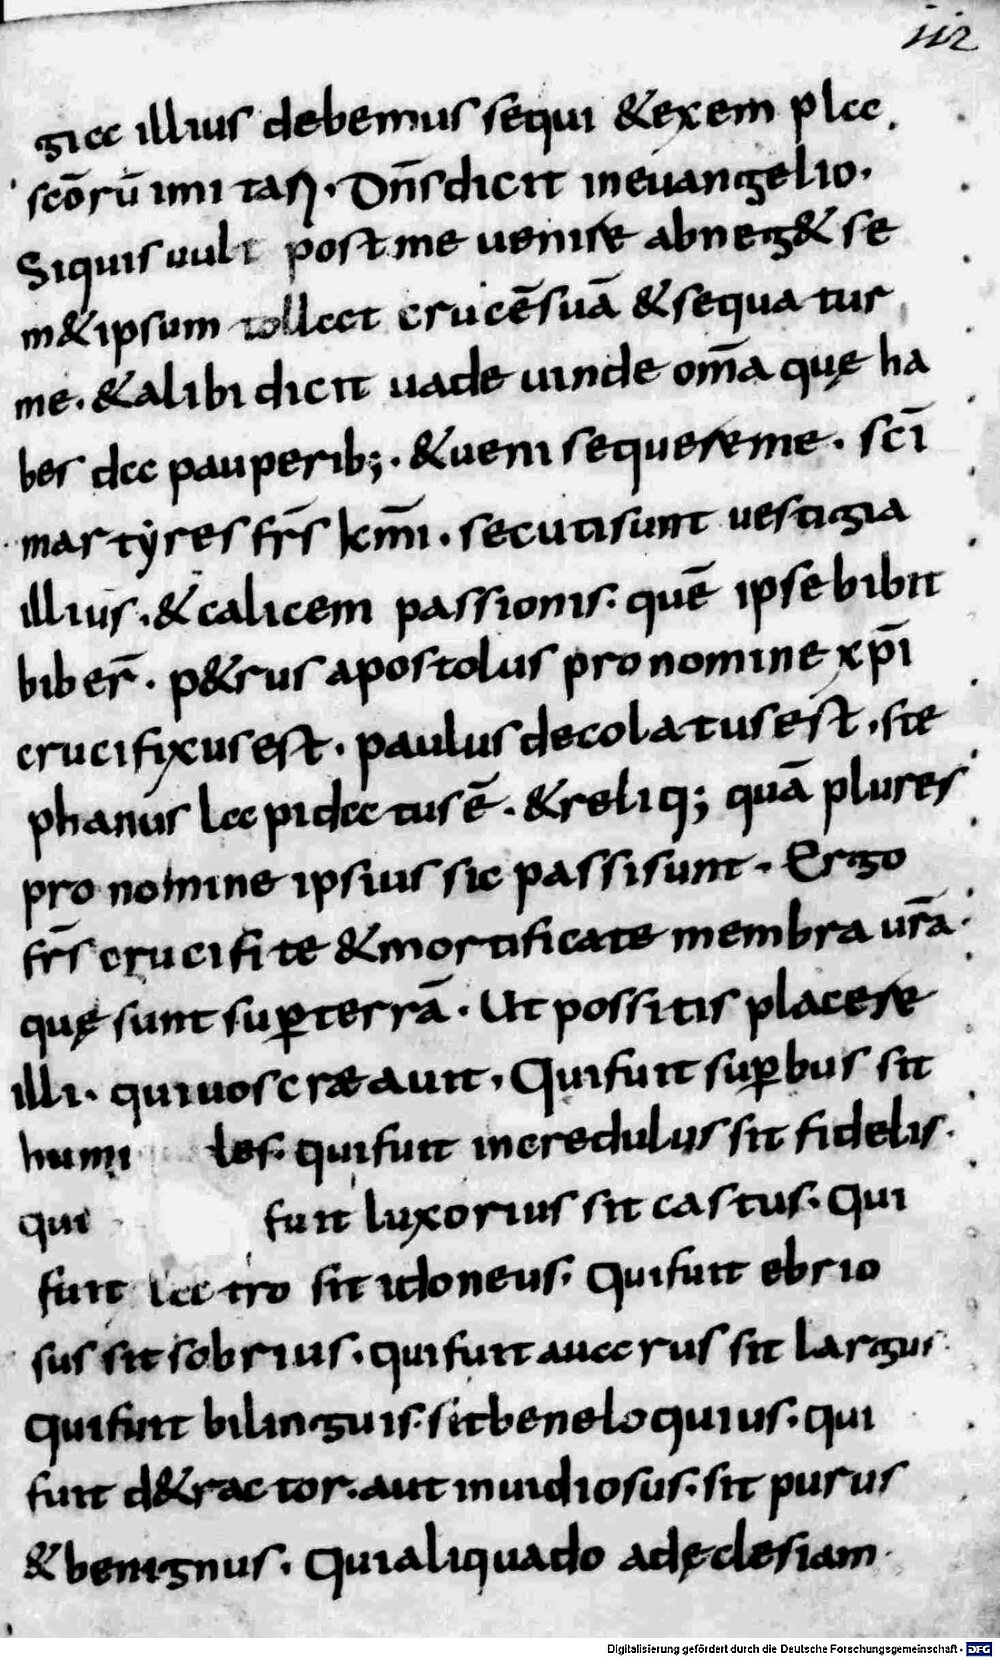 112
gia illius debemus sequi &exempla
scōrū imitari. Dn̄s dicit in euangelio.
Siquis uult post me uenire abneg& se
m&ipsum tollat crucē suā & sequatur
me. & alibi dicit uade uinde om̄a quę ha
bes da pauperib; . & ueni sequere me. sc̄i
martyres fr̄s km̄i. secuti sunt uestigia
illius. & calicem passionis. quē ipse bibit
biber̄. p&rus apostolus pro nomine xp̄i
crucifixus est. paulus decolatus est. ste
phanus lapidatus ē. & reliq; quā plures
pro nomine ipsius sic passi sunt. Ergo
fr̄s crucifite & mortificate membra ur̄a.
quę sunt sup̱ terrā. Ut possitis placere
illi. qui uos cræauit. Qui fuit sup̱bus sit
humi les. qui fuit incredulus sit fidelis.
qui fuit luxorius sit castus. Qui
fuit latro sit idoneus. Qui fuit ebrio
sus sit sobrius. qui fuit auarus sit largus.
Qui fuit bilinguis. sit beneloquius. qui
fuit d&ractor. aut inuidiosus. sit purus
& benignus. Qui aliquado ad ęclesiam
Digitalisierung gefördert durch die Deutsche Forschungsgemeinschaft - DFG